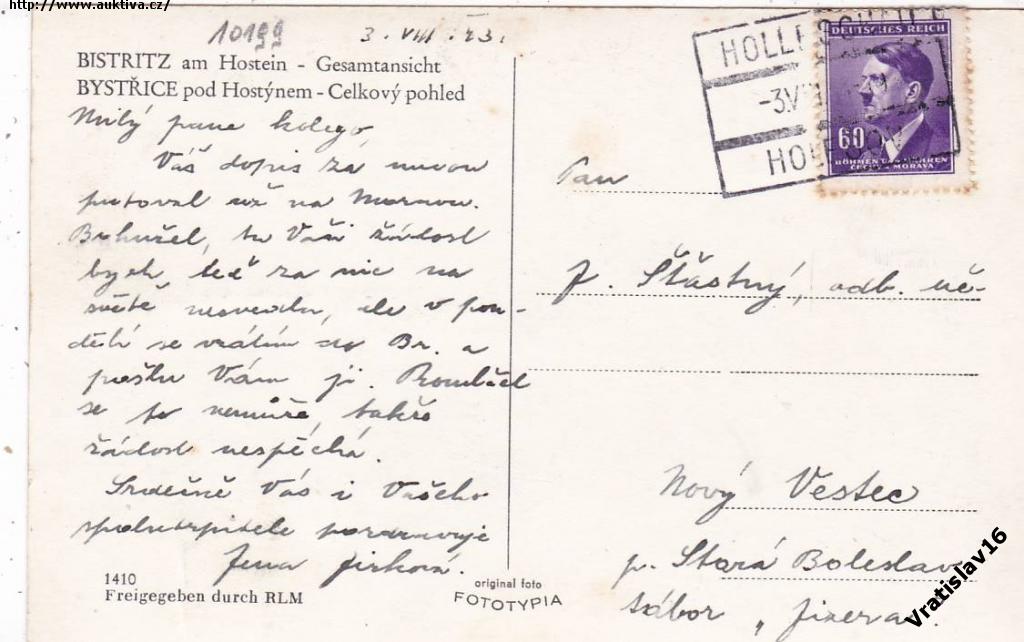 http://www.auktiva.cz/
10199
3. VIII. 43.
BISTRITZ am Hostein - Gesamtansicht
BYSTŘICE pod Hostýnem - Celkový pohled
Milý pane kolego
Váš dopis za mnou
putoval už na Moravu.
Bohužel, tu Vaši žádost
bych teď za nic na
světě nesvedla, ale v pon-
dělí se vrátím do Br. a
pošlu Vám ji.
se to nemůže, takže
žádost nespěchá.
Srdečně Vás i Vašeho
spolutrpitele pozdravuje
Jirková.
1410
Freigegeben durch RLM
original foto
FOTOTYPIA
HOLLESCHAU
-3.VIII
HOLEŠOV
DEUTSCHES REICH
60
BÖHMEN UND MÄHREN
ČECHY A MORAVA
Pan
J. Šťastný, odb. uč-
Nový Vestec
p. Stará Boleslav
tábor „Jizera"
Vratislav16